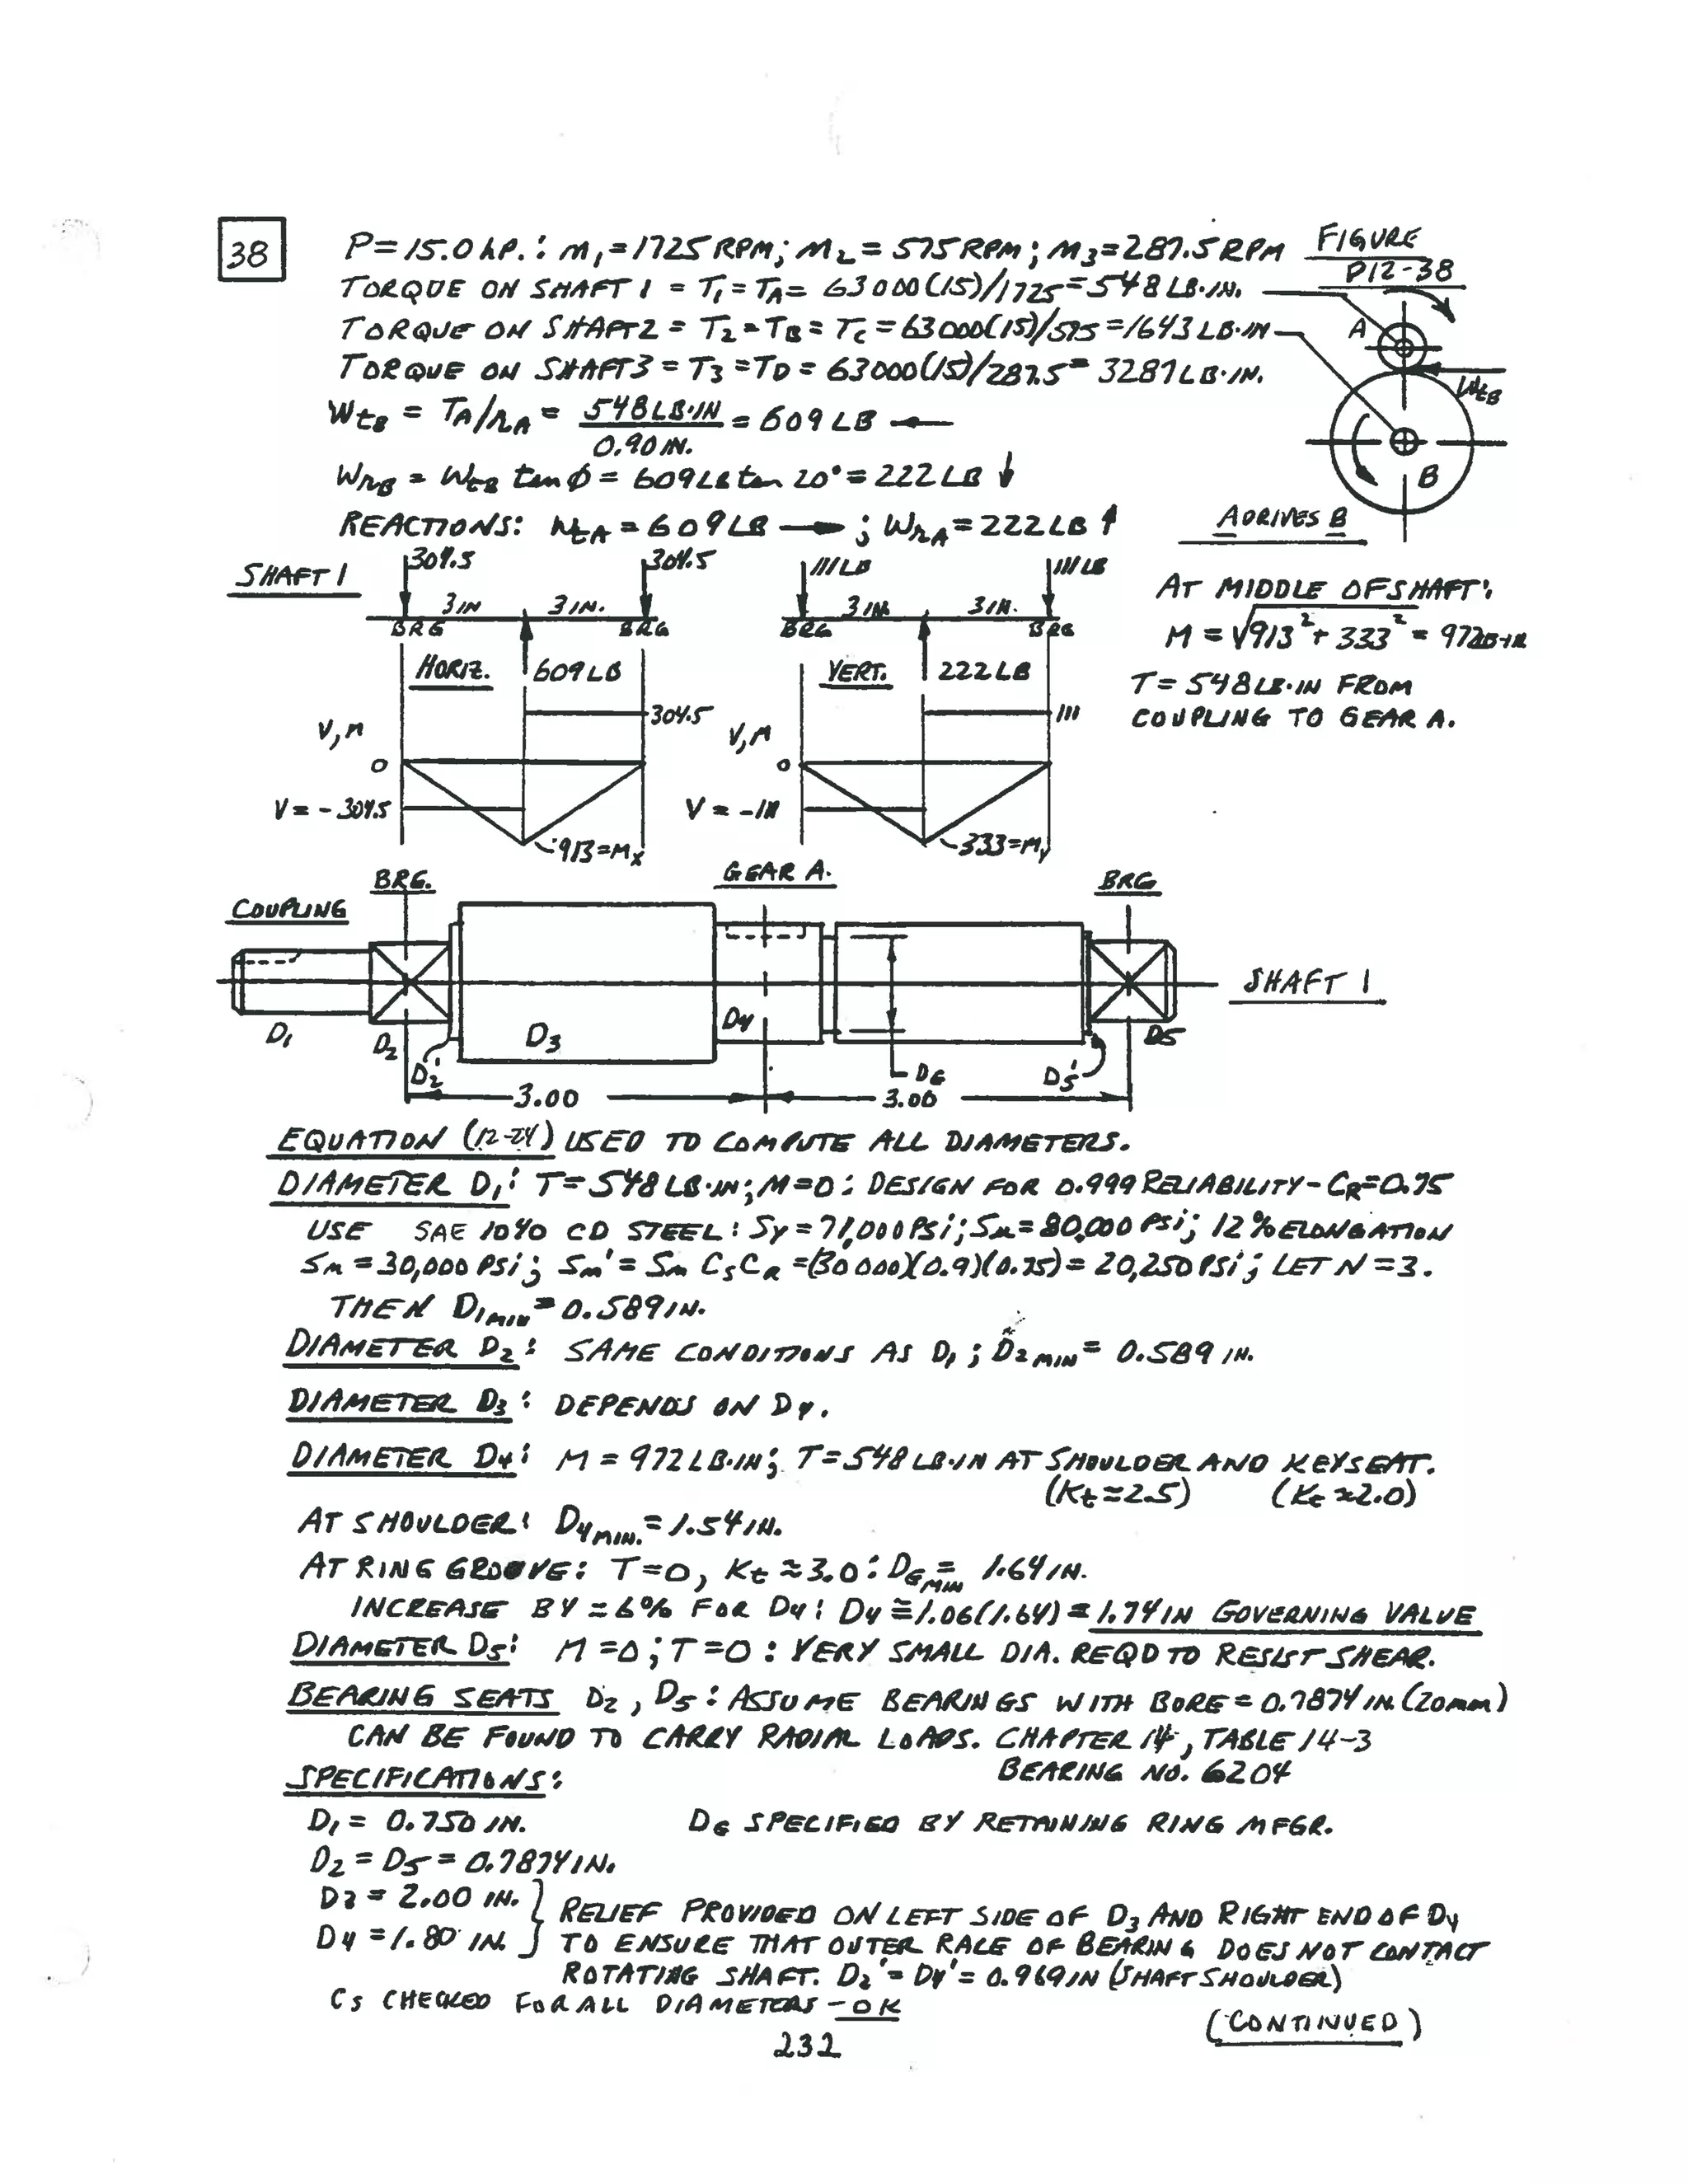 38
P=15.0 hP.: n1=1725 RPM; n2= 575 RPM; n3=287.5 RPM
FIGURE
P12-38
TORQUE ON SHAFT 1 = T1=TA= 63000(15)/1725=548 LB·IN.
TORQUE ON SHAFT 2 = T2=TB=TC=63000(15)/575=1643 LB·IN
TORQUE ON SHAFT 3 = T3=TD=63000(15)/287.5= 3287 LB·IN.
A
WtB
B
WtB = TA/rA = 548 LB·IN / 0.90 IN. = 609 LB ←
WrB = WtB tan Φ = 609 LB tan 20° = 222 LB ↓
REACTIONS: WtA = 609 LB → ; WrA = 222 LB ↑
A DRIVES B
SHAFT 1
304.5 304.5 111 LB 111 LB
3 IN 3 IN. 3 IN. 3 IN.
BRG BRG BRG BRG
HORIZ. 609 LB VERT. 222 LB
AT MIDDLE OF SHAFT:
M = √913² + 333² = 972 LB·IN
T = 548 LB·IN FROM
COUPLING TO GEAR A.
V,M 304.5 V,M 111
0 0
V = -304.5 V = -111
913=Mx 333=My
BRG. GEAR A. BRG
COUPLING
SHAFT 1
D1 D2 D2' D3 D4 DG D5' D5
3.00 3.00
EQUATION (12-24) USED TO COMPUTE ALL DIAMETERS.
DIAMETER D1: T=548 LB·IN; M=0: DESIGN FOR 0.999 RELIABILITY - CR=0.75
USE SAE 1040 CD STEEL: Sy = 71,000 PSi; Su= 80,000 PSi; 12% ELONGATION
Sn = 30,000 PSi; Sn' = Sn CS CR =(30000)(0.9)(0.75)= 20,250 PSi; LET N = 3.
THEN D1MIN = 0.589 IN.
DIAMETER D2: SAME CONDITIONS AS D1; D2MIN = 0.589 IN.
DIAMETER D3: DEPENDS ON D4.
DIAMETER D4: M = 972 LB·IN; T=548 LB·IN AT SHOULDER AND KEYSEAT.
(Kt≈2.5) (Kt≈2.0)
AT SHOULDER: D4MIN. = 1.54 IN.
AT RING GROOVE: T=0, Kt≈3.0: DGMIN = 1.64 IN.
INCREASE BY ≈ 6% FOR D4: D4 ≅ 1.06(1.64) = 1.74 IN GOVERNING VALUE
DIAMETER D5: M=0; T=0: VERY SMALL DIA. REQD TO RESIST SHEAR.
BEARING SEATS D2, D5: ASSUME BEARINGS WITH BORE = 0.7874 IN. (20mm)
CAN BE FOUND TO CARRY RADIAL LOADS. CHAPTER 14, TABLE 14-3
BEARING NO. 6204
SPECIFICATIONS:
D1 = 0.750 IN. DG SPECIFIED BY RETAINING RING MFGR.
D2 = D5 = 0.7874 IN.
D3 = 2.00 IN.
D4 = 1.80 IN.
RELIEF PROVIDED ON LEFT SIDE OF D3 AND RIGHT END OF D4
TO ENSURE THAT OUTER RACE OF BEARING DOES NOT CONTACT
ROTATING SHAFT. D2' = D4' = 0.969 IN (SHAFT SHOULDER)
CS CHECKED FOR ALL DIAMETERS - OK
(CONTINUED)
232